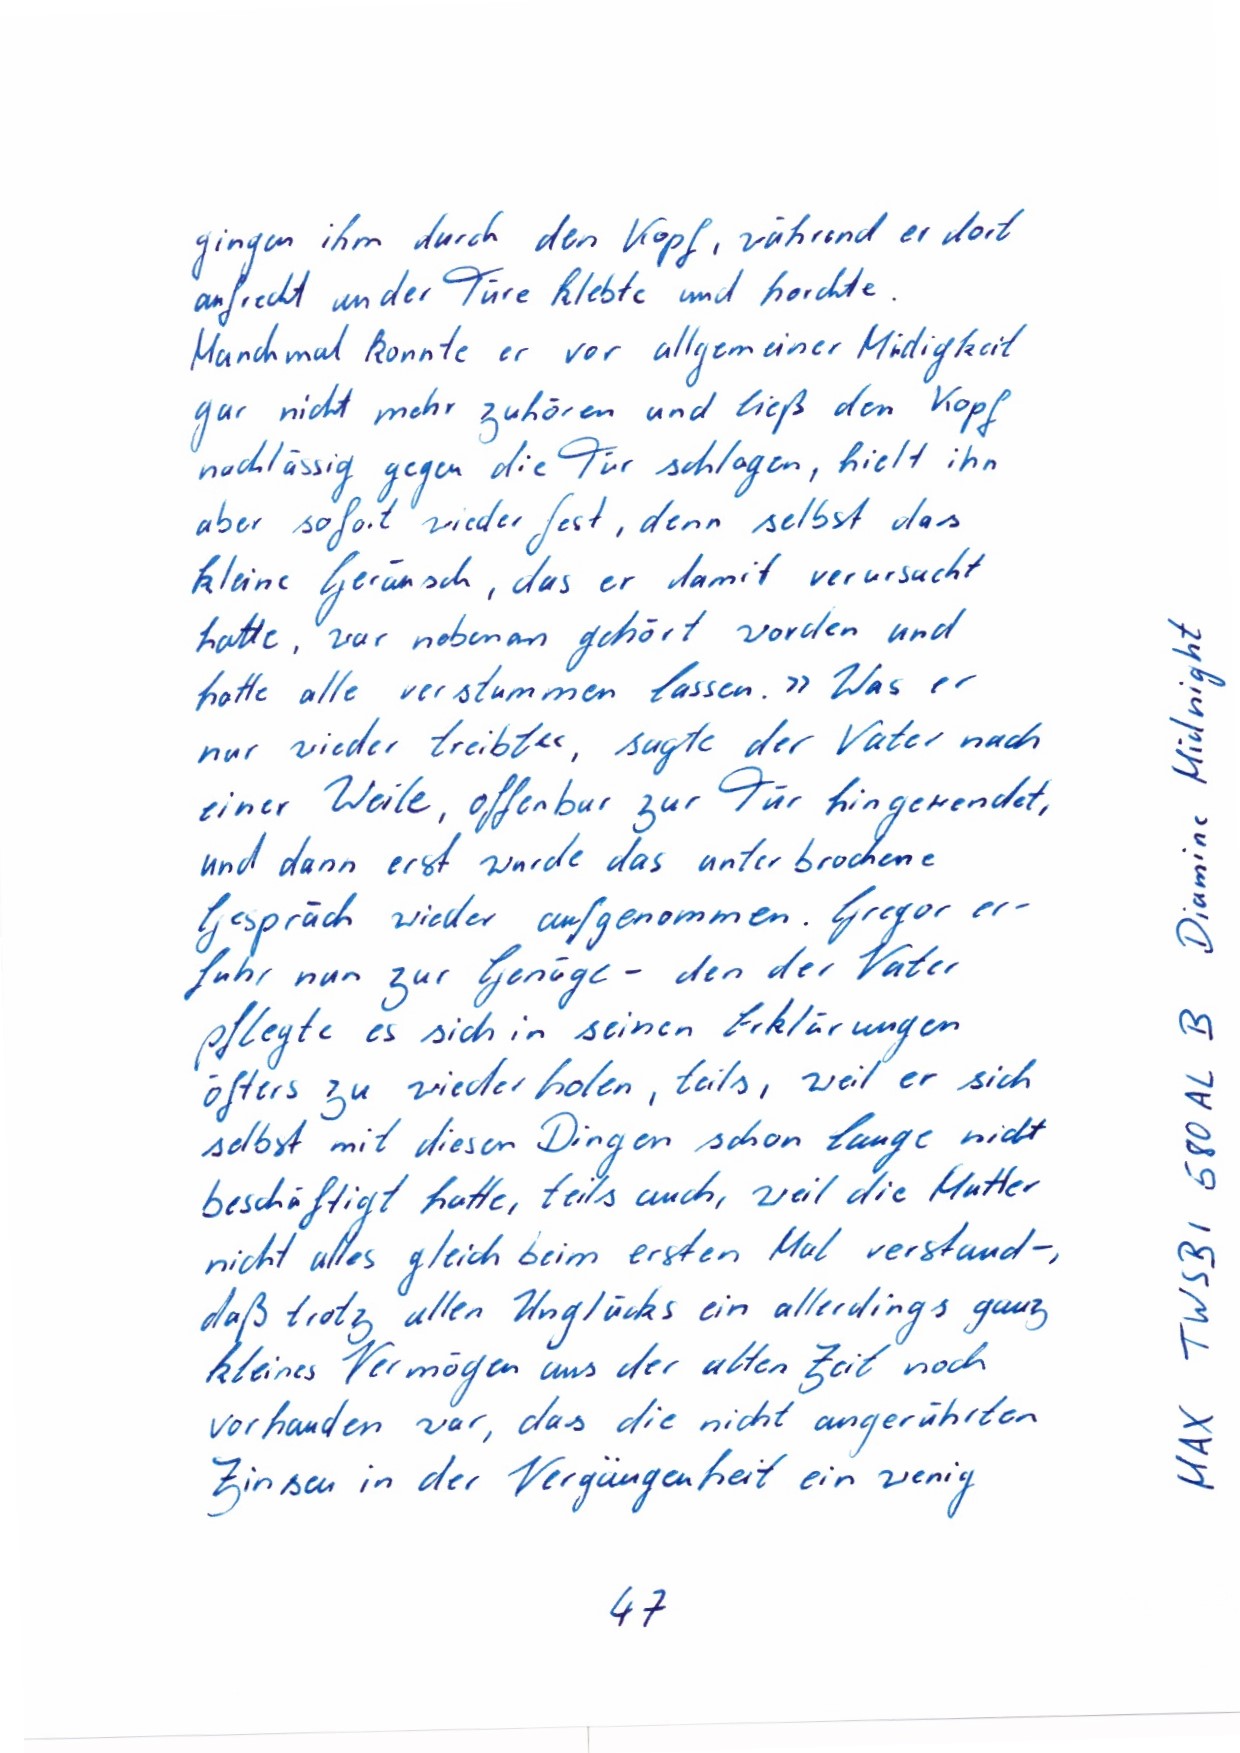 gingen ihm durch den Kopf, während er dort
aufrecht an der Türe klebte und horchte.
Manchmal konnte er vor allgemeiner Müdigkeit
gar nicht mehr zuhören und ließ den Kopf
nachlässig gegen die Tür schlagen, hielt ihn
aber sofort wieder fest, denn selbst das
kleine Geräusch, das er damit verursacht
hatte, war nebenan gehört worden und
hatte alle verstummen lassen. »Was er
nur wieder treibt««, sagte der Vater nach
einer Weile, offenbar zur Tür hingewendet,
und dann erst wurde das unterbrochene
Gespräch wieder aufgenommen. Gregor er-
fuhr nun zur Genüge – den der Vater
pflegte es sich in seinen Erklärungen
öfters zu wiederholen, teils, weil er sich
selbst mit diesen Dingen schon lange nicht
beschäftigt hatte, teils auch, weil die Mutter
nicht alles gleich beim ersten Mal verstand–,
daß trotz allen Unglücks ein allerdings ganz
kleines Vermögen aus der alten Zeit noch
vorhanden war, das die nicht angerührten
Zinsen in der Vergangenheit ein wenig
47
MAX TWSBI 580 AL B Diamine Midnight